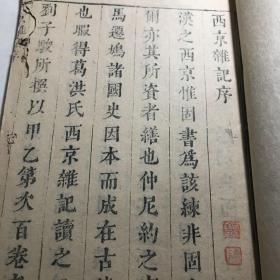 西京雜記序
漢之西京惟固書爲該練非固
爾亦其所資者繕也仲尼約之
馬遷鳩諸國史因本而成在古
也服得葛洪氏西京雜記讀之
劉子駿所撰以甲乙第次百卷